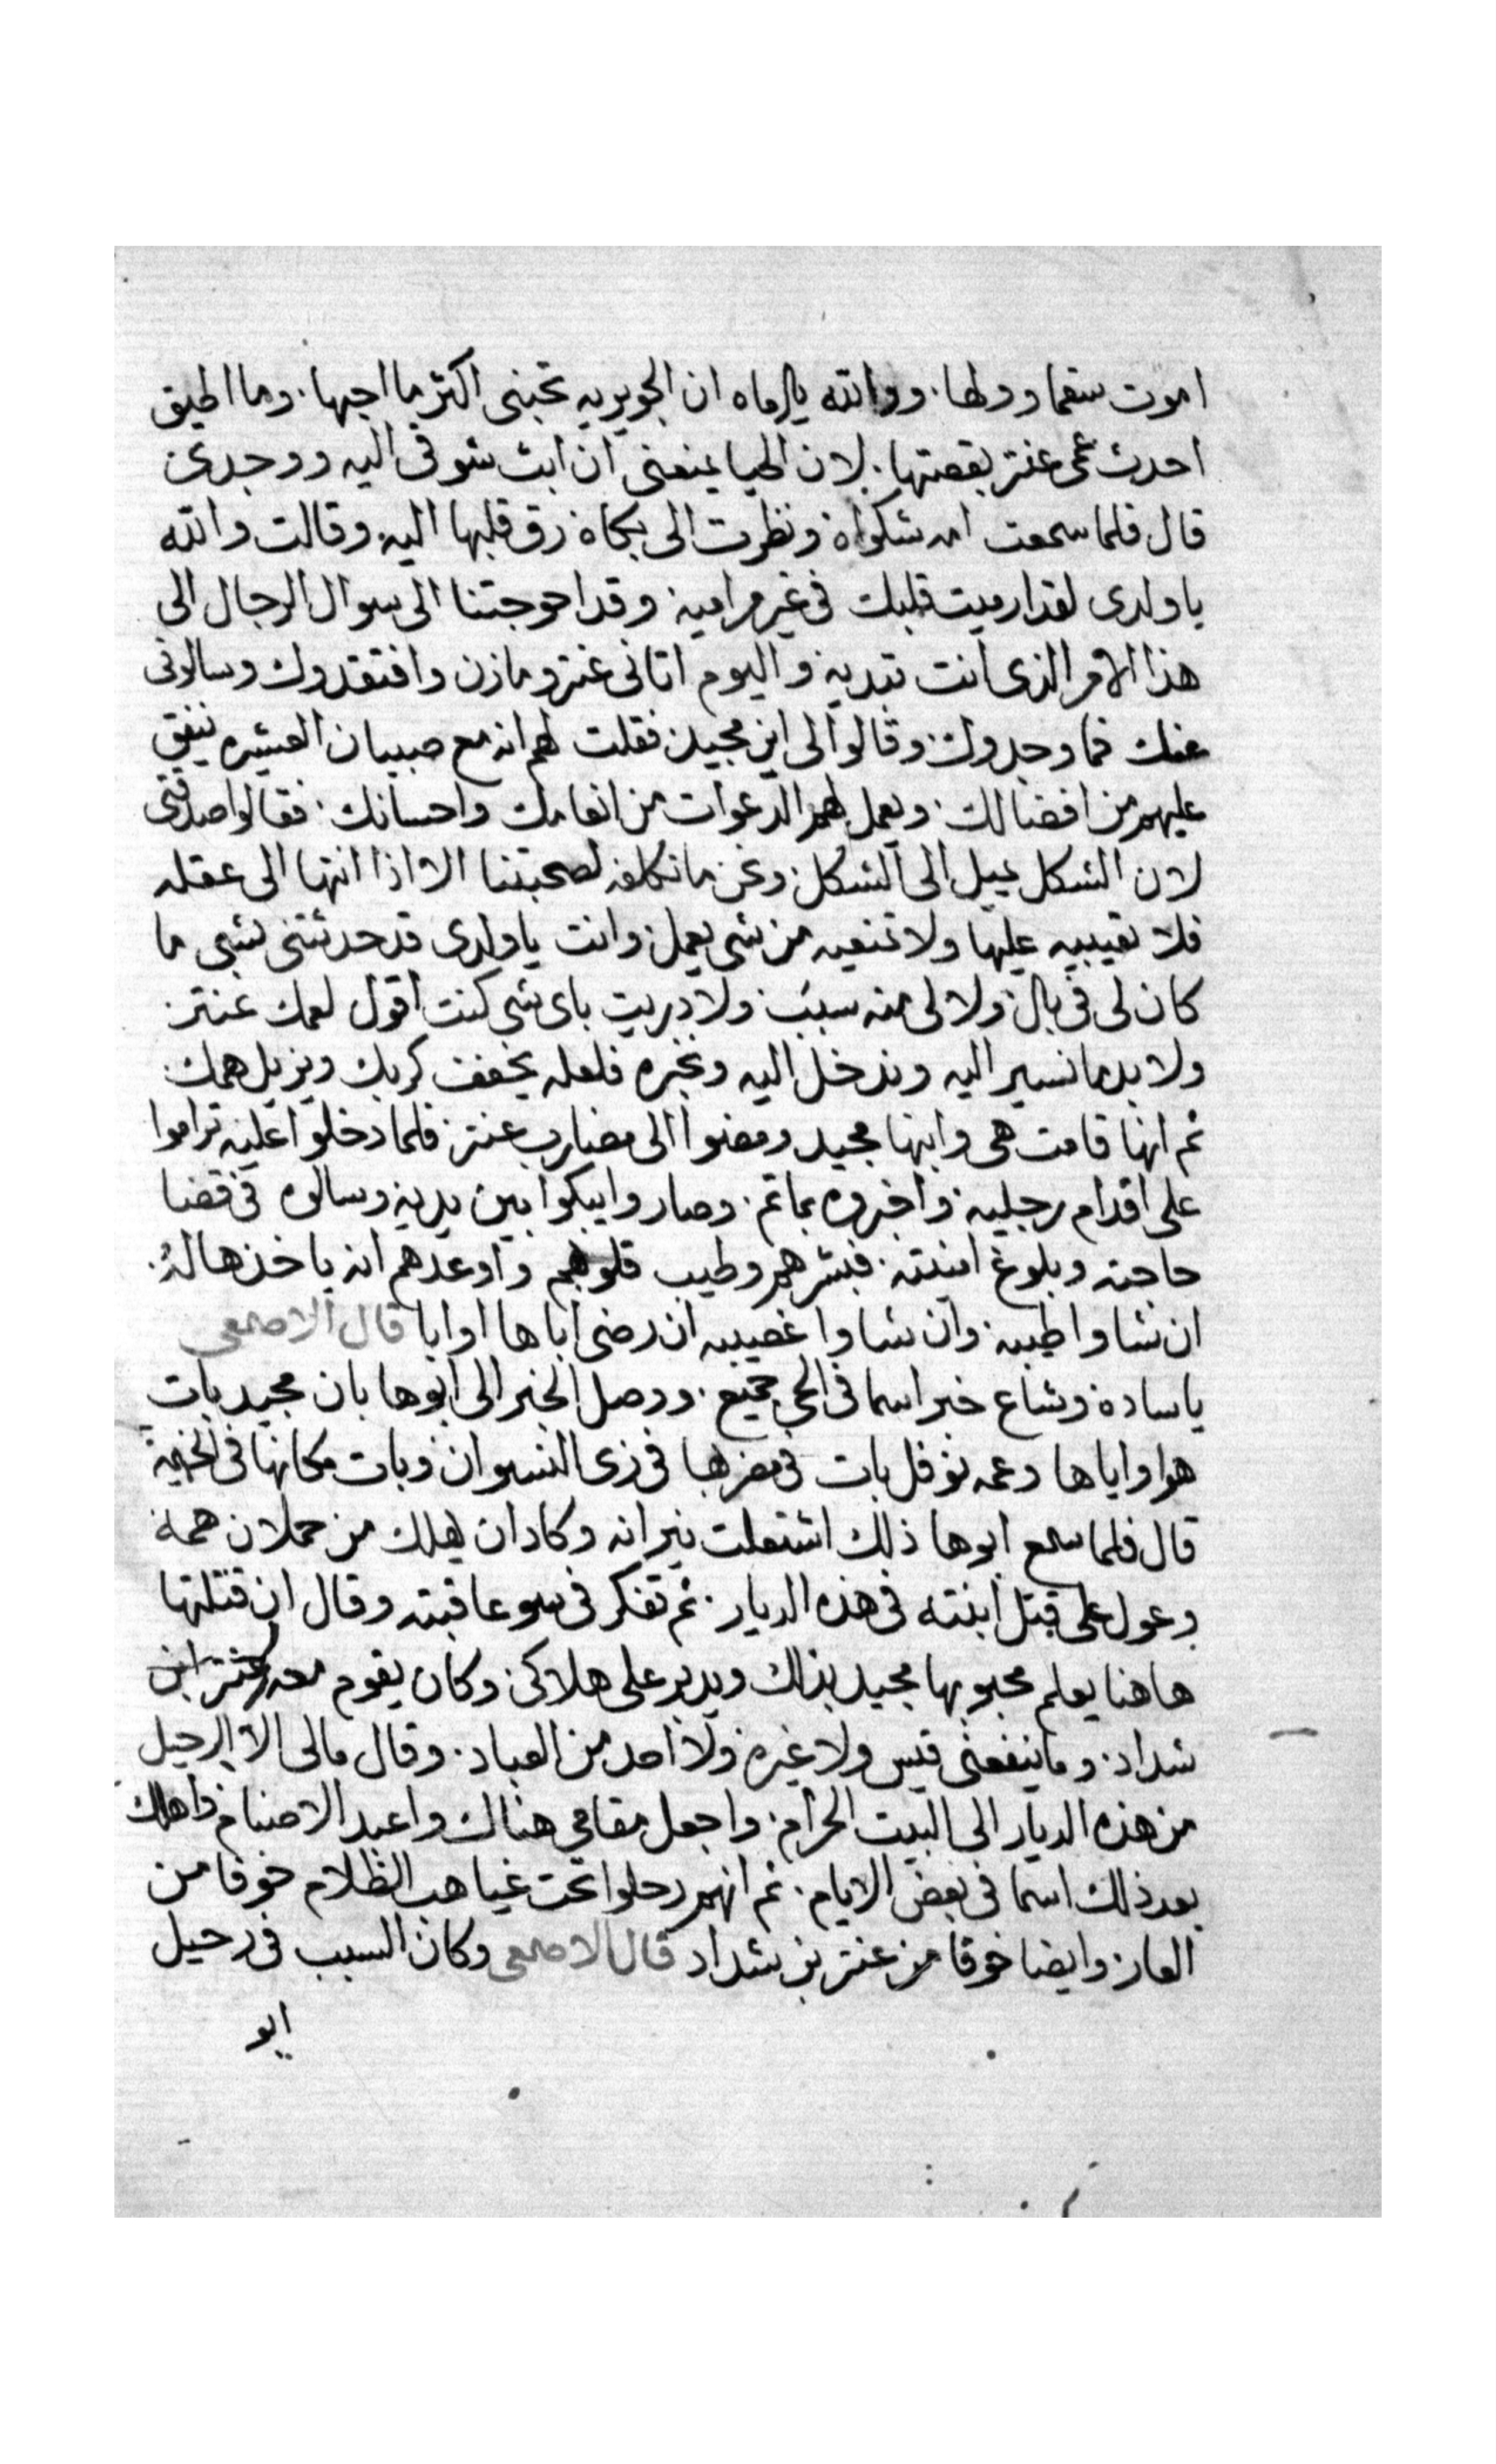 اموت سقما وولها. ووالله يا اماه ان الجويريه تحبنى اكثر ما احبها. وما اطيق
احدث عمى عنتر بقصتها. لان الحيا يمنعنى ان ابث شوقى اليه ووجدى
قال فلما سمعت امه شكواه ونظرت الى بكاه رق قلبها اليه وقالت والله
يا ولدى لقد ارميت قلبك فى غير مراميه وقد احوجتنا الى سوال الرجال الى
هذا الامر الذى انت تبديه واليوم اتانى عنتر ومازن وافتقدوك وسالونى
عنك فما وجدوك وقالوا لى اين مجيد فقلت لهم انه مع صبيان العشيره ينفق
عليهم من افضالك. ويعمل لهم الدعوات من انعامك واحسانك. فقالوا صدقتى
لان الشكل يميل الى الشكل ونحن ما نكلفه لصحبتنا الا اذا انتها الى عقله
فلا تعيبيه عليها ولا تمنعيه من شى يعمل وانت يا ولدى قد حدثتنى بشى ما
كان لى فى بال ولا لى منه سبب ولا دريت باى شى كنت اقول لعمك عنتر
ولا بد ما نسير اليه وندخل اليه ونخبره فلعله يخفف كربك ويزيل همك
ثم انها قامت هى وابنها مجيد ومضوا الى مضارب عنتر فلما دخلوا عليه تراموا
على اقدام رجليه واخبروه بما تم. وصاروا يبكوا بين يديه وسالوه فى قضا
حاجته وبلوغ امنيته. فبشرهم وطيب قلوبهم واوعدهم انه ياخذها له.
ان شاوا طيبه وان شاوا غصيبه ان رضى اباها او ابا قال الاصمعى
يا ساده وشاع خبر اسما فى الحى جميع. ووصل الخبر الى ابوها بان مجيد بات
هوا واياها وعمه نوفل بات فى مضربها فى زى النسوان وبات مكانها فى الخيمه
قال فلما سمع ابوها ذلك اشتعلت نيرانه وكاد ان يهلك من حملان همه
وعول على قتل ابنته فى هذه الديار. ثم تفكر فى سو عاقبته وقال ان قتلتها
هاهنا يعلم محبوبها مجيد بذلك ويدبر على هلاكى وكان يقوم معه عنتر ابن
شداد. وما ينفعنى قيس ولا غيره ولا احد من العباد. وقال مالى الا الرحيل
من هذه الديار الى البيت الحرام. واجعل مقامى هناك واعبد الاصنام واهلك
بعد ذلك اسما فى بعض الايام. ثم انهم رحلوا تحت غياهب الظلام خوفا من
العار وايضا خوفا من عنتر بن شداد قال الاصمعى وكان السبب فى رحيل
ابو